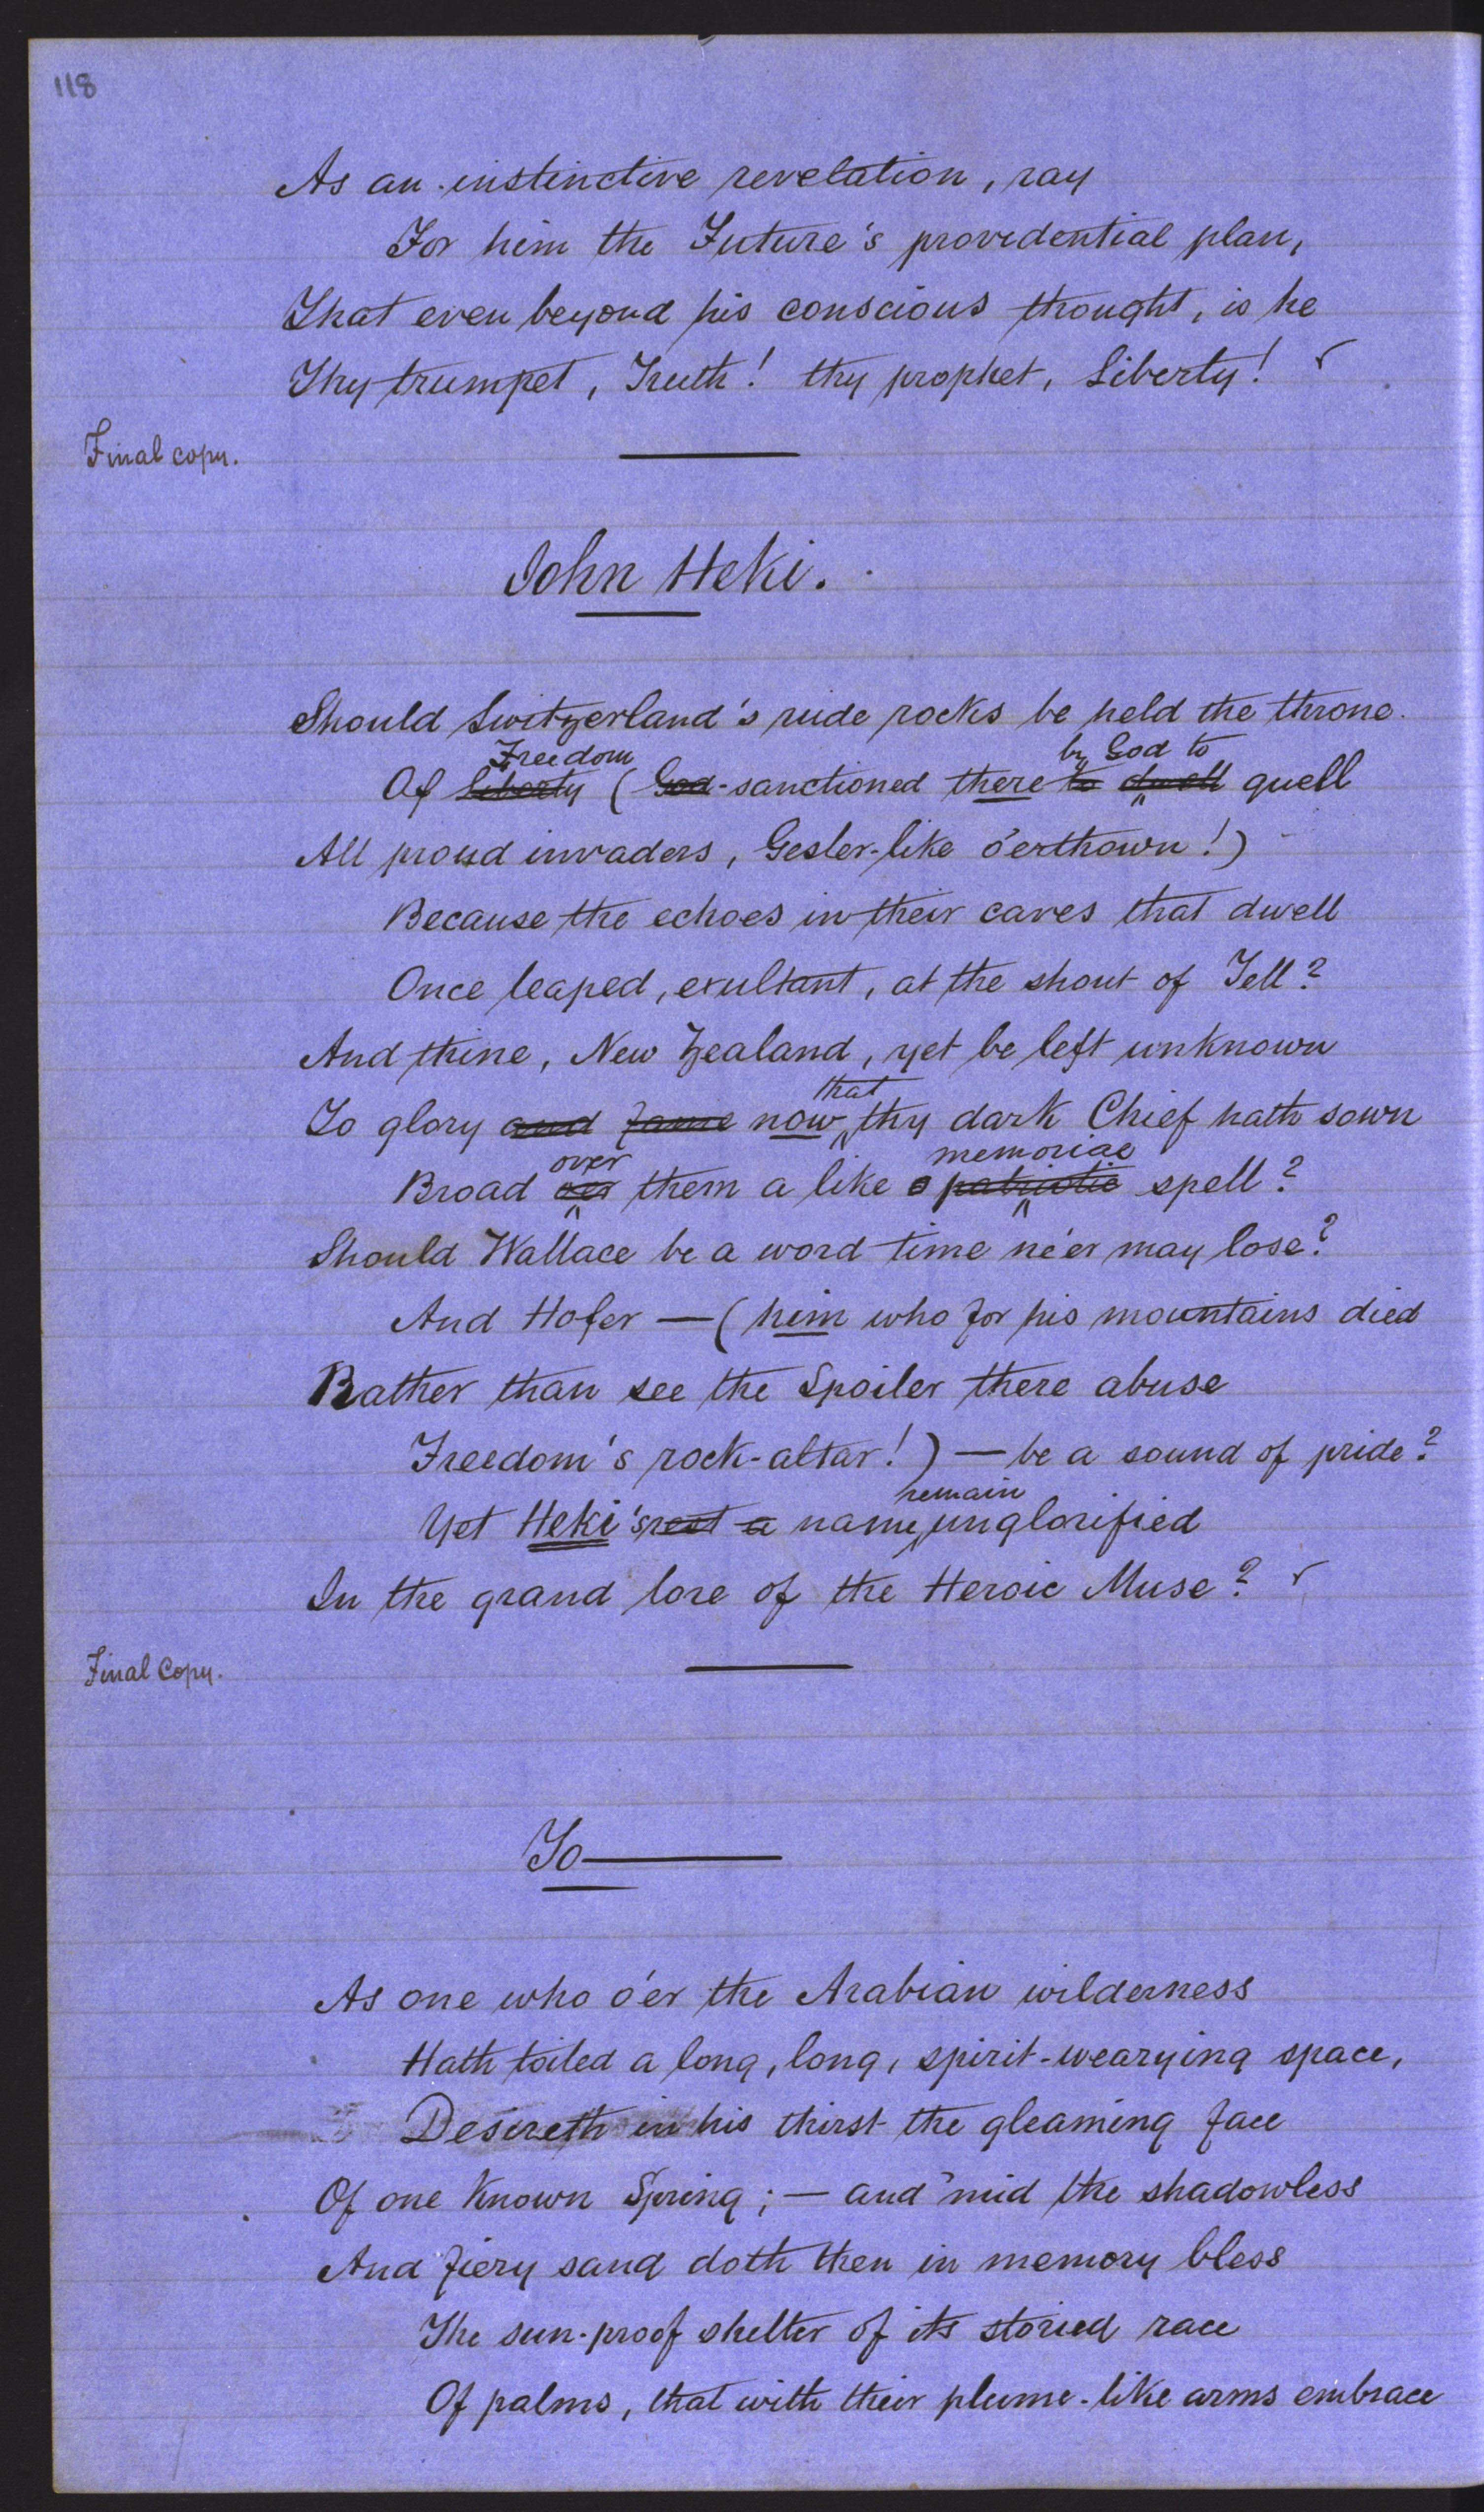 118
As an instinctive revelation, ray
For him the Future's providential plan,
That even beyond his conscious thought, is he
Thy trumpet, Truth! thy prophet, Liberty! ✓
Final copy.
John Heki.
Should Switzerland's rude rocks be held the throne
Freedom by God to
Of Liberty (God-sanctioned there to dwell quell
All proud invaders, Gesler-like o'erthown!)
Because the echoes in their caves that dwell
Once leaped, exultant, at the shout of Tell?
And thine, New Zealand, yet be left unknown
that
To glory and fame now thy dark Chief hath sown
over memorial
Broad oer them a like patriotic spell?
Should Wallace be a word time ne'er may lose?
And Hofer — (him who for his mountains died
Rather than see the Spoiler there abuse
Freedom's rock-altar!) — be a sound of pride?
remain
Yet Heki's rest a name, unglorified
In the grand lore of the Heroic Muse? ✓
Final Copy.
To———
As one who o'er the Arabian wilderness
Hath toiled a long, long, spirit-wearying space,
Desireth in his thirst the gleaming face
Of one known Spring; — and 'mid the shadowless
And fiery sand doth then in memory bless
The sun-proof shelter of its storied race
Of palms, that with their plume-like arms embrace